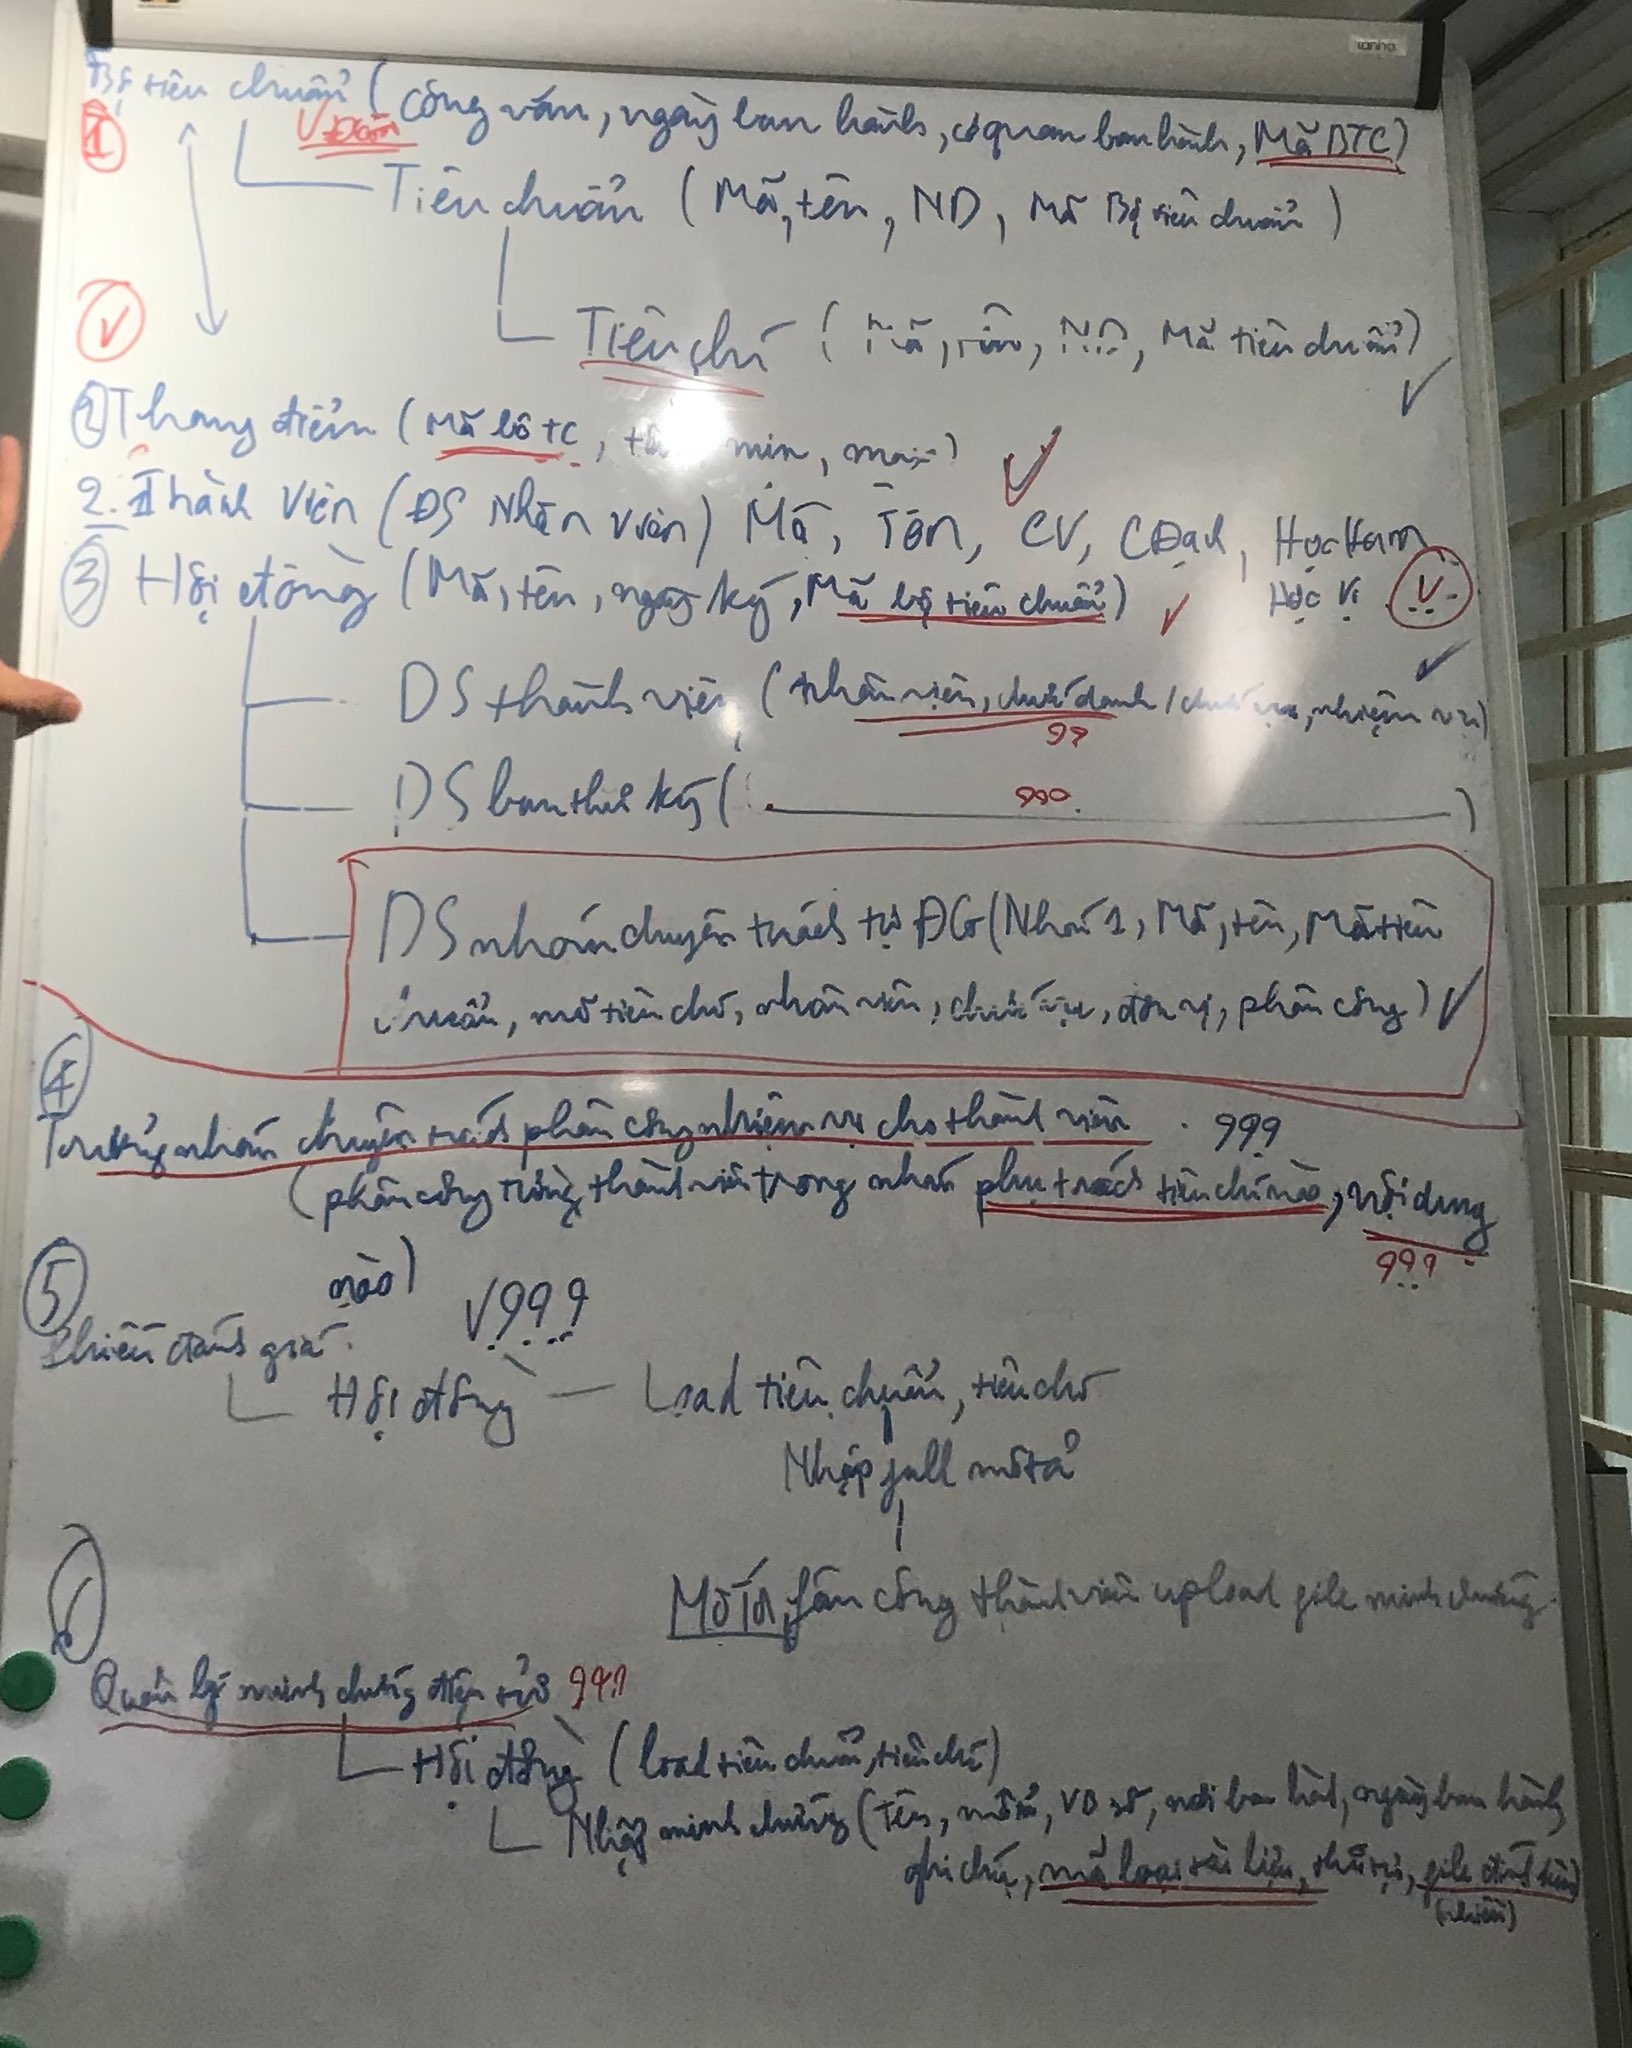 Bộ tiêu chuẩn (công văn, ngày ban hành, cơ quan ban hành, Mã BTC)
1
Tiêu chuẩn (Mã, tên, ND, Mã Bộ tiêu chuẩn)
Tiêu chí (Mã, tên, ND, Mã tiêu chuẩn)
2 Thang điểm (Mã bộ TC, min, max)
2.1 Thành viên (DS Nhân viên) Mã, Tên, CV, CDanh, Học Hàm
Học Vị
3 Hội đồng (Mã, tên, ngày ký, Mã bộ tiêu chuẩn)
DS thành viên (nhân viên, chức danh / chức vụ, nhiệm vụ)
??
DS ban thư ký ( ??? )
DS nhóm chuyên trách tự ĐG (Nhóm 1, Mã, tên, Mã tiêu
chuẩn, mã tiêu chí, nhân viên, chức vụ, đơn vị, phân công)
4
Trưởng nhóm chuyên trách phân công nhiệm vụ cho thành viên. ???
(phân công từng thành viên trong nhóm phụ trách tiêu chí nào, nội dung
???
nào)
5
???
Phiếu đánh giá
Hội đồng — Load tiêu chuẩn, tiêu chí
Nhập full mô tả
Mô Tả phân công thành viên upload file minh chứng
6
Quản lý minh chứng điện tử ???
Hội đồng (load tiêu chuẩn, tiêu chí)
Nhập minh chứng (Tên, mô tả, VB số, nơi ban hành, ngày ban hành,
ghi chú, mã loại tài liệu, thứ tự, file đính kèm)
(nhiều)